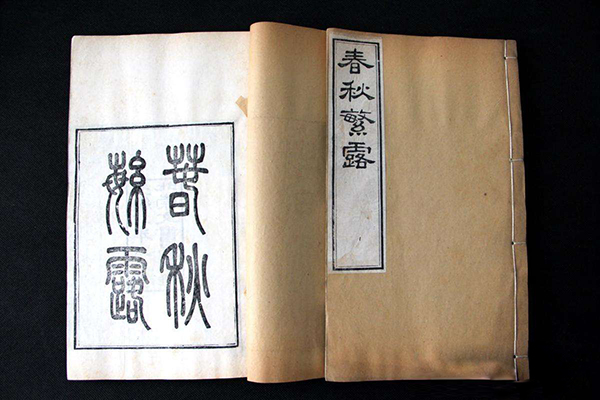 春秋繁露
春秋
繁露